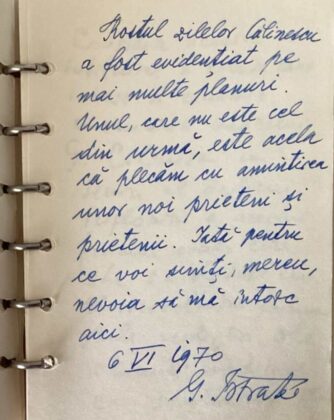 Rostul zilelor Călinescu
a fost evidențiat pe
mai multe planuri.
Unul, care nu este cel
din urmă, este acela
că plecăm cu amintirea
unor noi prieteni și
prietenii. Iată pentru
ce voi simți, mereu,
nevoia să mă întorc
aici.
6 VI 1970
G. Istrate